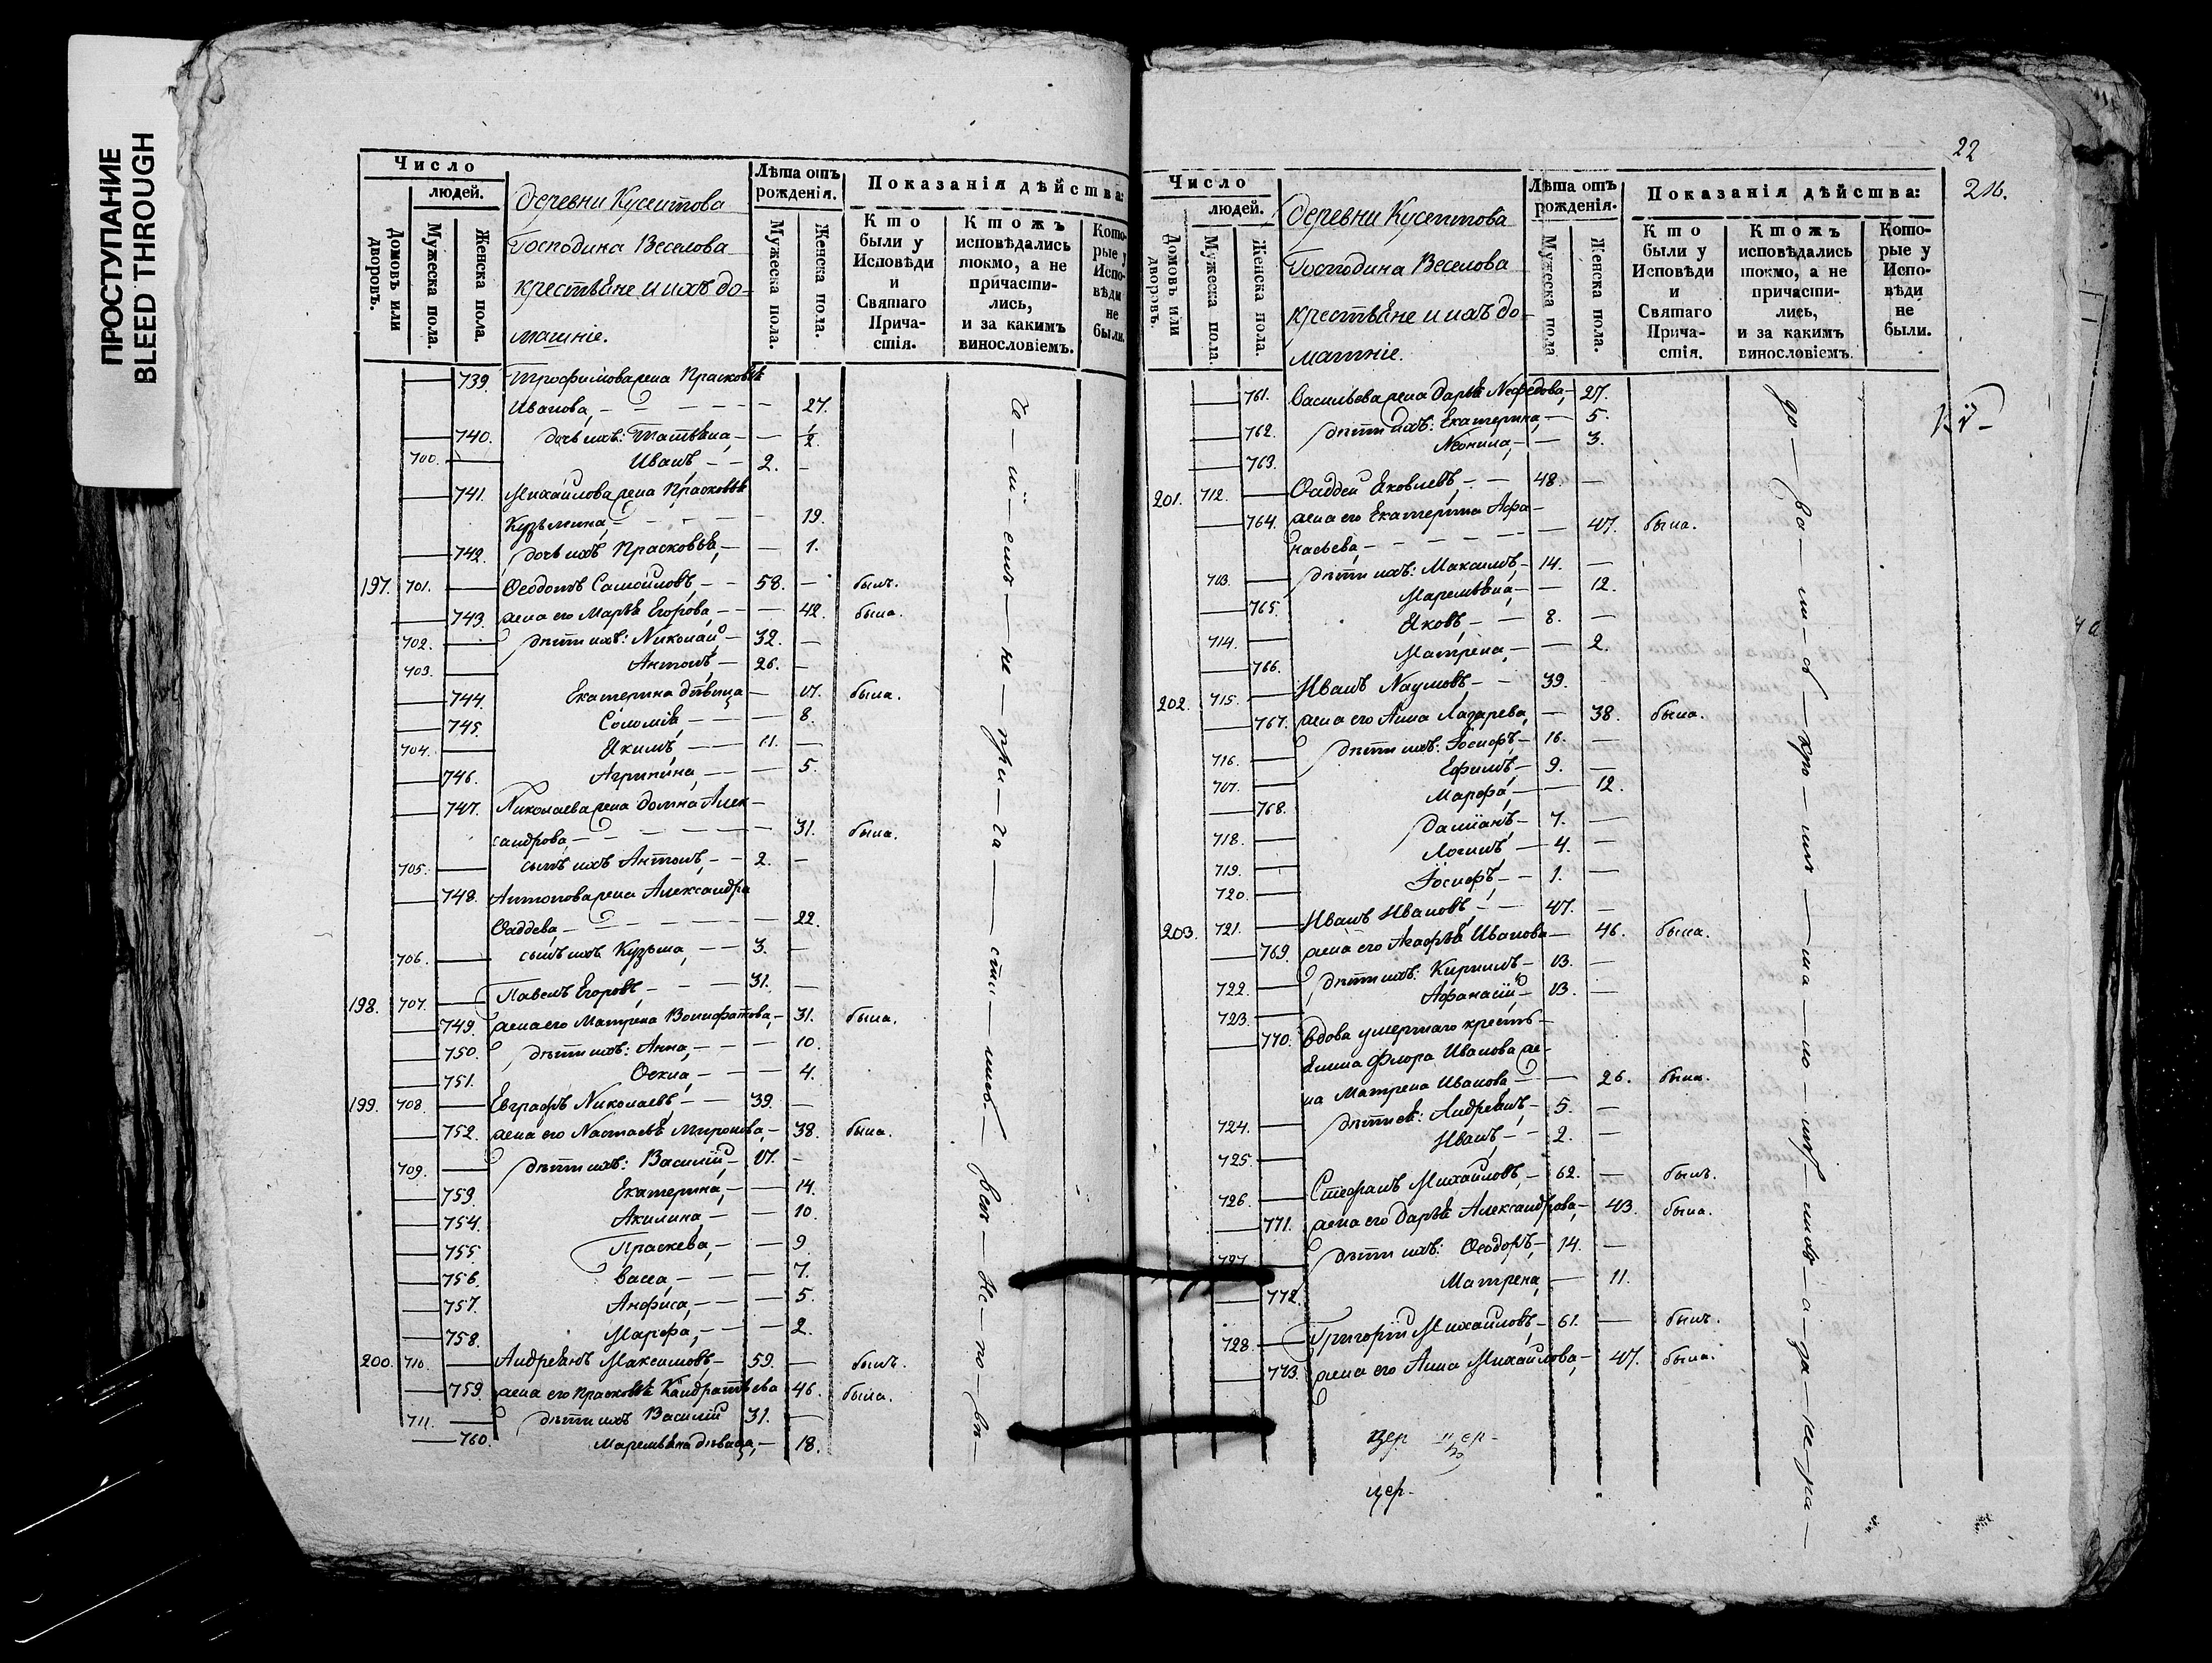 ПРОСТУПАНИЕ
BLEED THROUGH
Число
людей.
Домовъ или дворовъ.
Мужеска пола.
Женска пола.
деревни Кусеитова
Господина Веселова
крестьяне и ихъ до-
машніе.
Лѣта отъ рожденія.
Мужеска пола.
Женска пола.
Показанія дѣйства:
Кто были у Исповѣди и Святаго Прича-стія.
Ктожъ исповѣдались токмо, а не причасти-лись, и за какимъ винословіемъ.
Кото-рые у Испо-вѣди не были.
739. Трофимова жена Прасковья
Иванова, 27.
740. дочь ихъ: Татьяна, 1/2
700. Иванъ 2.
741. Михайлова жена Прасковья
Кузьмина, 19.
742. дочь ихъ Прасковья, 1.
197. 701. Ѳеодотъ Самойловъ, 58. былъ.
743. жена его Марья Егорова, 42. была.
702. дѣти ихъ: Николай 32.
703. Антонъ 26.
744. Екатерина дѣвица 17. была.
745. Соломія 8.
704. Якимъ, 11.
746. Агрипина, 5.
747. Николаева жена Домна Алек-
сандрова, 31. была.
705. сынъ ихъ Антонъ, 2.
748. Антонова жена Александра
Ѳаддева, 22.
706. сынъ ихъ Кузьма, 3.
198. 707. Павелъ Егоровъ, 31.
749. жена его Матрена Вонифатова, 31. была.
750. дѣти ихъ: Анна, 10.
751. Ѳекла, 4.
199. 708. Евграфъ Николаевъ, 39.
752. жена его Настасья Миронова, 38. была.
709. дѣти ихъ: Василій 17.
753. Екатерина, 14.
754. Акилина, 10.
755. Праскева, 9.
756. Васса, 7.
757. Анфиса, 5.
758. Марфа, 2.
200. 710. Андреянъ Максимовъ, 59. былъ.
759. жена его Прасковья Кондратьева 46. была.
711. дѣти ихъ Василій 31.
760. Маремьяна дѣвица, 18.
22
216.
Число
людей.
Домовъ или дворовъ.
Мужеска пола.
Женска пола.
деревни Кусеитова
Господина Веселова
крестьяне и ихъ до-
машніе.
Лѣта отъ рожденія.
Мужеска пола
Женска пола.
Показанія дѣйства:
Кто были у Исповѣди и Святаго Прича-стія.
Ктожъ исповѣдались токмо, а не причасти-лись, и за какимъ винословіемъ.
Кото-рые у Испо-вѣди не были.
761. Васильева жена Дарья Нефедова, 27.
762. дѣти ихъ: Екатерина, 5.
763. Неонила, 3.
201. 712. Ѳаддей Яковлевъ, 48.
764. жена его Екатерина Афа-
насьева, 47. была.
713. дѣти ихъ: Максимъ, 14.
765. Маремьяна, 12.
714. Яковъ, 8.
766. Матрена, 2.
202. 715. Иванъ Наумовъ 39.
767. жена его Анна Лазарева, 38. была.
716. дѣти ихъ: Іосифъ, 16.
717. Ефимъ, 9.
768. Марфа, 12.
718. Даміанъ 7.
719. Логинъ 4.
720. Іосифъ 1.
203. 721. Иванъ Ивановъ, 47.
769. жена его Агафья Иванова 46. была.
722. дѣти ихъ: Кирилъ 13.
723. Афанасій 13.
770. вдова умершаго кресть-
янина Флора Иванова же-
на Матрена Иванова 26. была.
724. дѣти ея: Андреянъ 5.
725. Иванъ, 2.
726. Стефанъ Михайловъ, 62. былъ.
771. жена его Дарья Александрова, 43. была.
727. дѣти ихъ: Ѳеодоръ, 14.
772. Матрена, 11.
728. Григорій Михайловъ, 61. былъ.
773. жена его Анна Михайлова, 47. была.
цер цер-
цер-